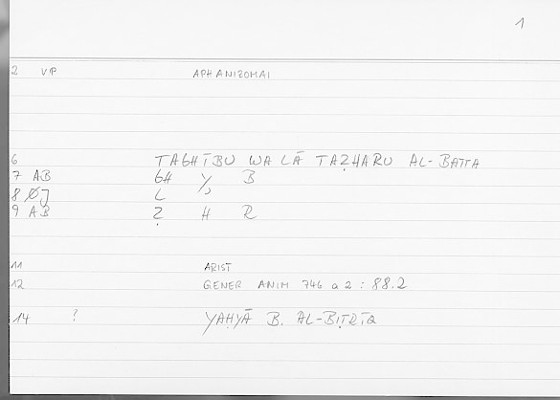 1
2 VP APHANIZOMAI
6 TAGHĪBU WA LĀ TAẒHARU AL-BATTA
7 AB GH Y B
8 ØJ L
9 AB Ẓ H R
11 ARIST
12 GENER ANIM 746 a 2 : 88.2
14 ? YAḤYĀ B. AL-BIṬRĪQ